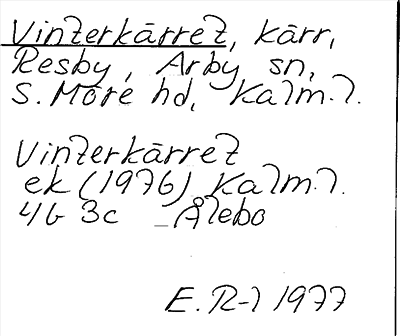 Vinterkärret, kärr,
Resby, Arby sn,
S. Möre hd, Kalm. l.
Vinterkärret
ek (1976) Kalm. l.
4G 3c Ålebo
E. R-l 1977